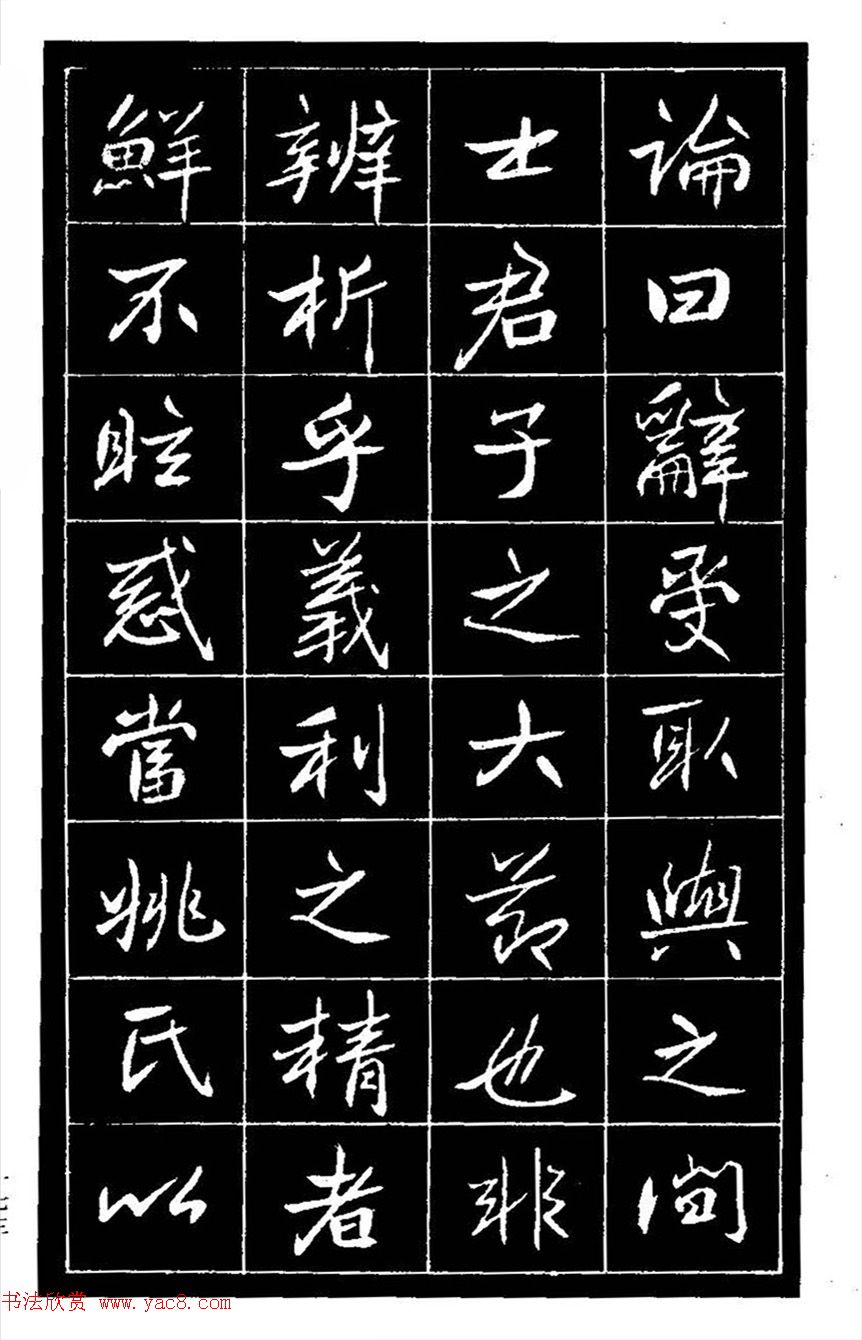 論曰辭受取與之間
士君子之大節也非
辨析乎義利之精者
鮮不眩惑當姚氏以
书法欣赏 www.yac8.com